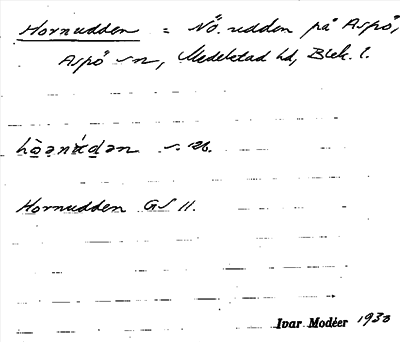 Hornudden = NÖ. udden på Aspö,
Aspö sn, Medelstad hd, Blek. l.
s. st.
Hornudden GS 11.
Ivar Modéer 1933